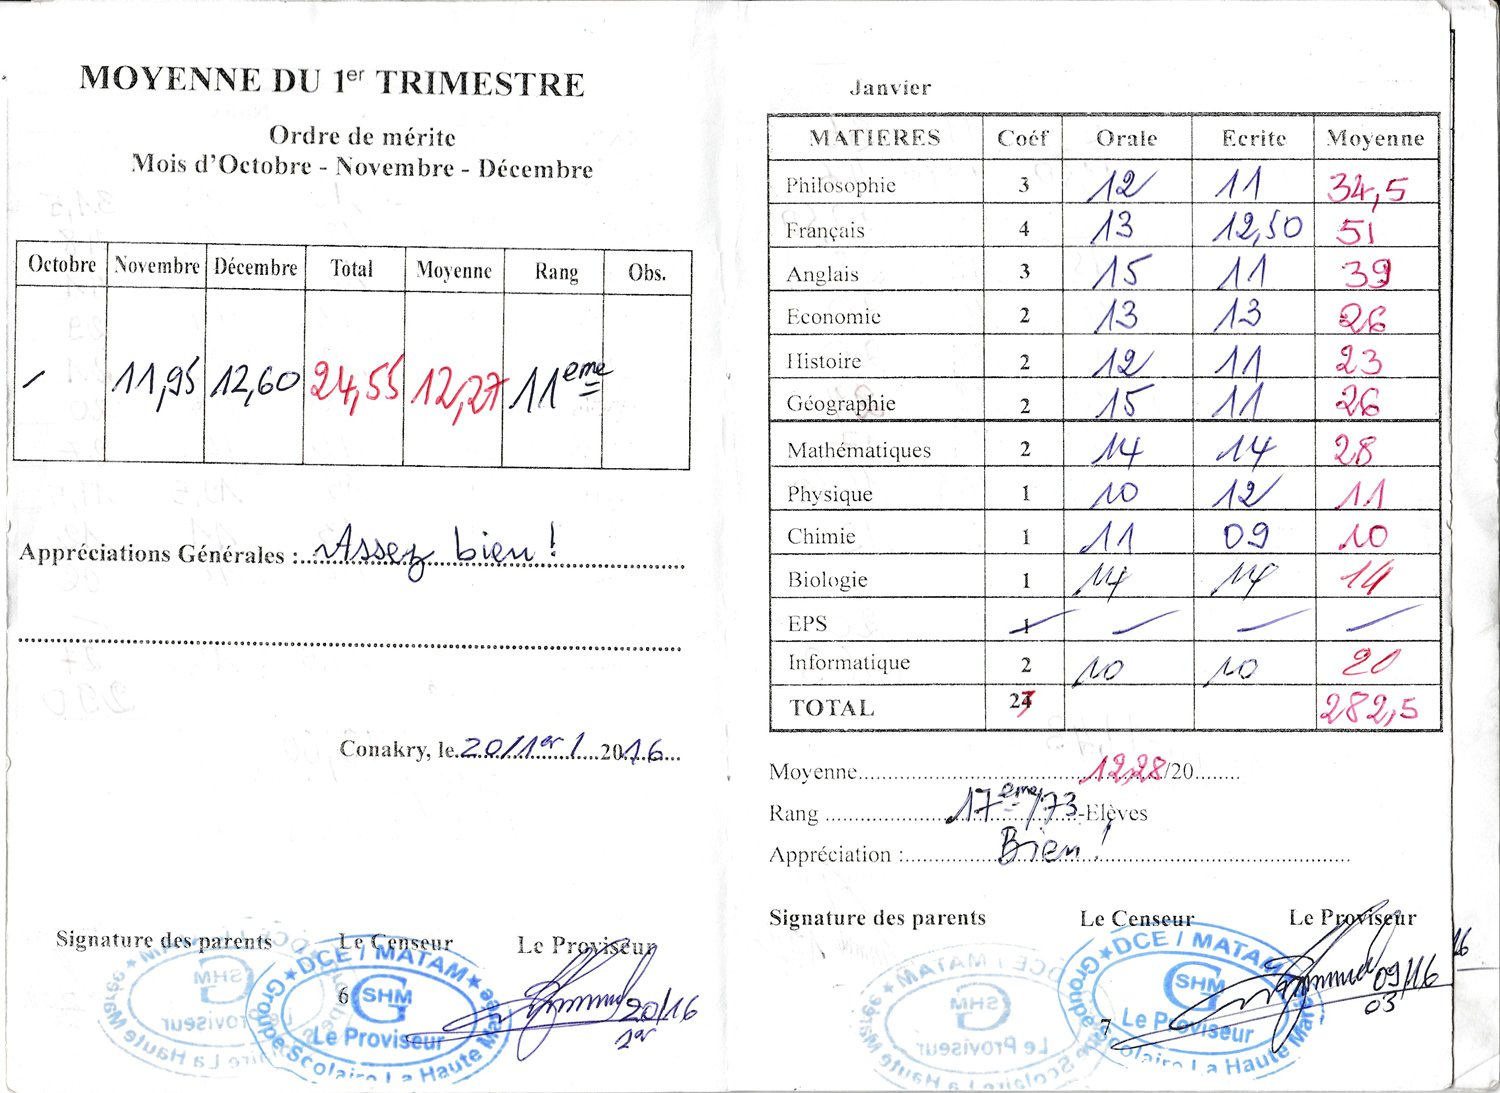 MOYENNE DU 1er TRIMESTRE
Ordre de mérite
Mois d'Octobre - Novembre - Décembre
Octobre Novembre Décembre Total Moyenne Rang Obs.
11,95 12,60 24,55 12,27 11eme
Appréciations Générales : Assez bien !
Conakry, le 20/1er/ 2016
Signature des parents Le Censeur Le Proviseur
6
DCE / MATAM
SHM
Le Proviseur
Groupe Scolaire La Haute Maree
20/16
1er
Janvier
MATIERES Coéf Orale Ecrite Moyenne
Philosophie 3 12 11 34,5
Français 4 13 12,50 51
Anglais 3 15 11 39
Economie 2 13 13 26
Histoire 2 12 11 23
Géographie 2 15 11 26
Mathématiques 2 14 14 28
Physique 1 10 12 11
Chimie 1 11 09 10
Biologie 1 14 14 14
EPS 1
Informatique 2 10 10 20
TOTAL 23 282,5
Moyenne 12,28/20
Rang 17eme/73 -Elèves
Appréciation : Bien !
Signature des parents Le Censeur Le Proviseur
7
DCE / MATAM
SHM
Le Proviseur
09/16
03
16